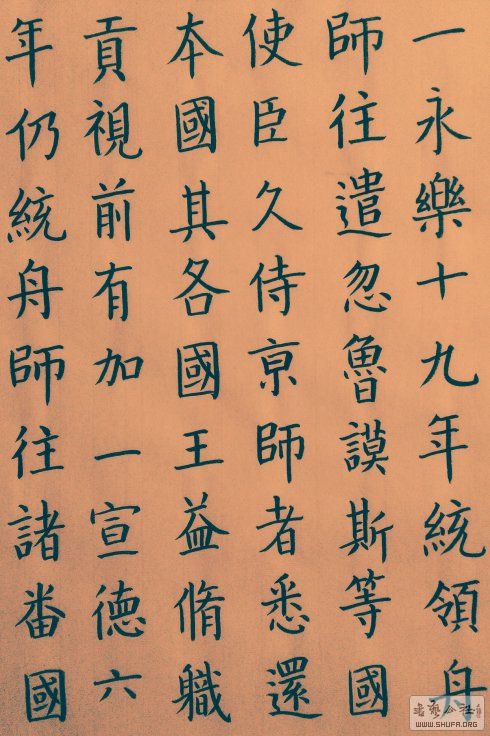 一永樂十九年統領舟
師往遣忽魯謨斯等國
使臣久侍京師者悉還
本國其各國王益脩職
貢視前有加一宣德六
年仍統舟師往諸番國
WWW.SHUFA.ORG